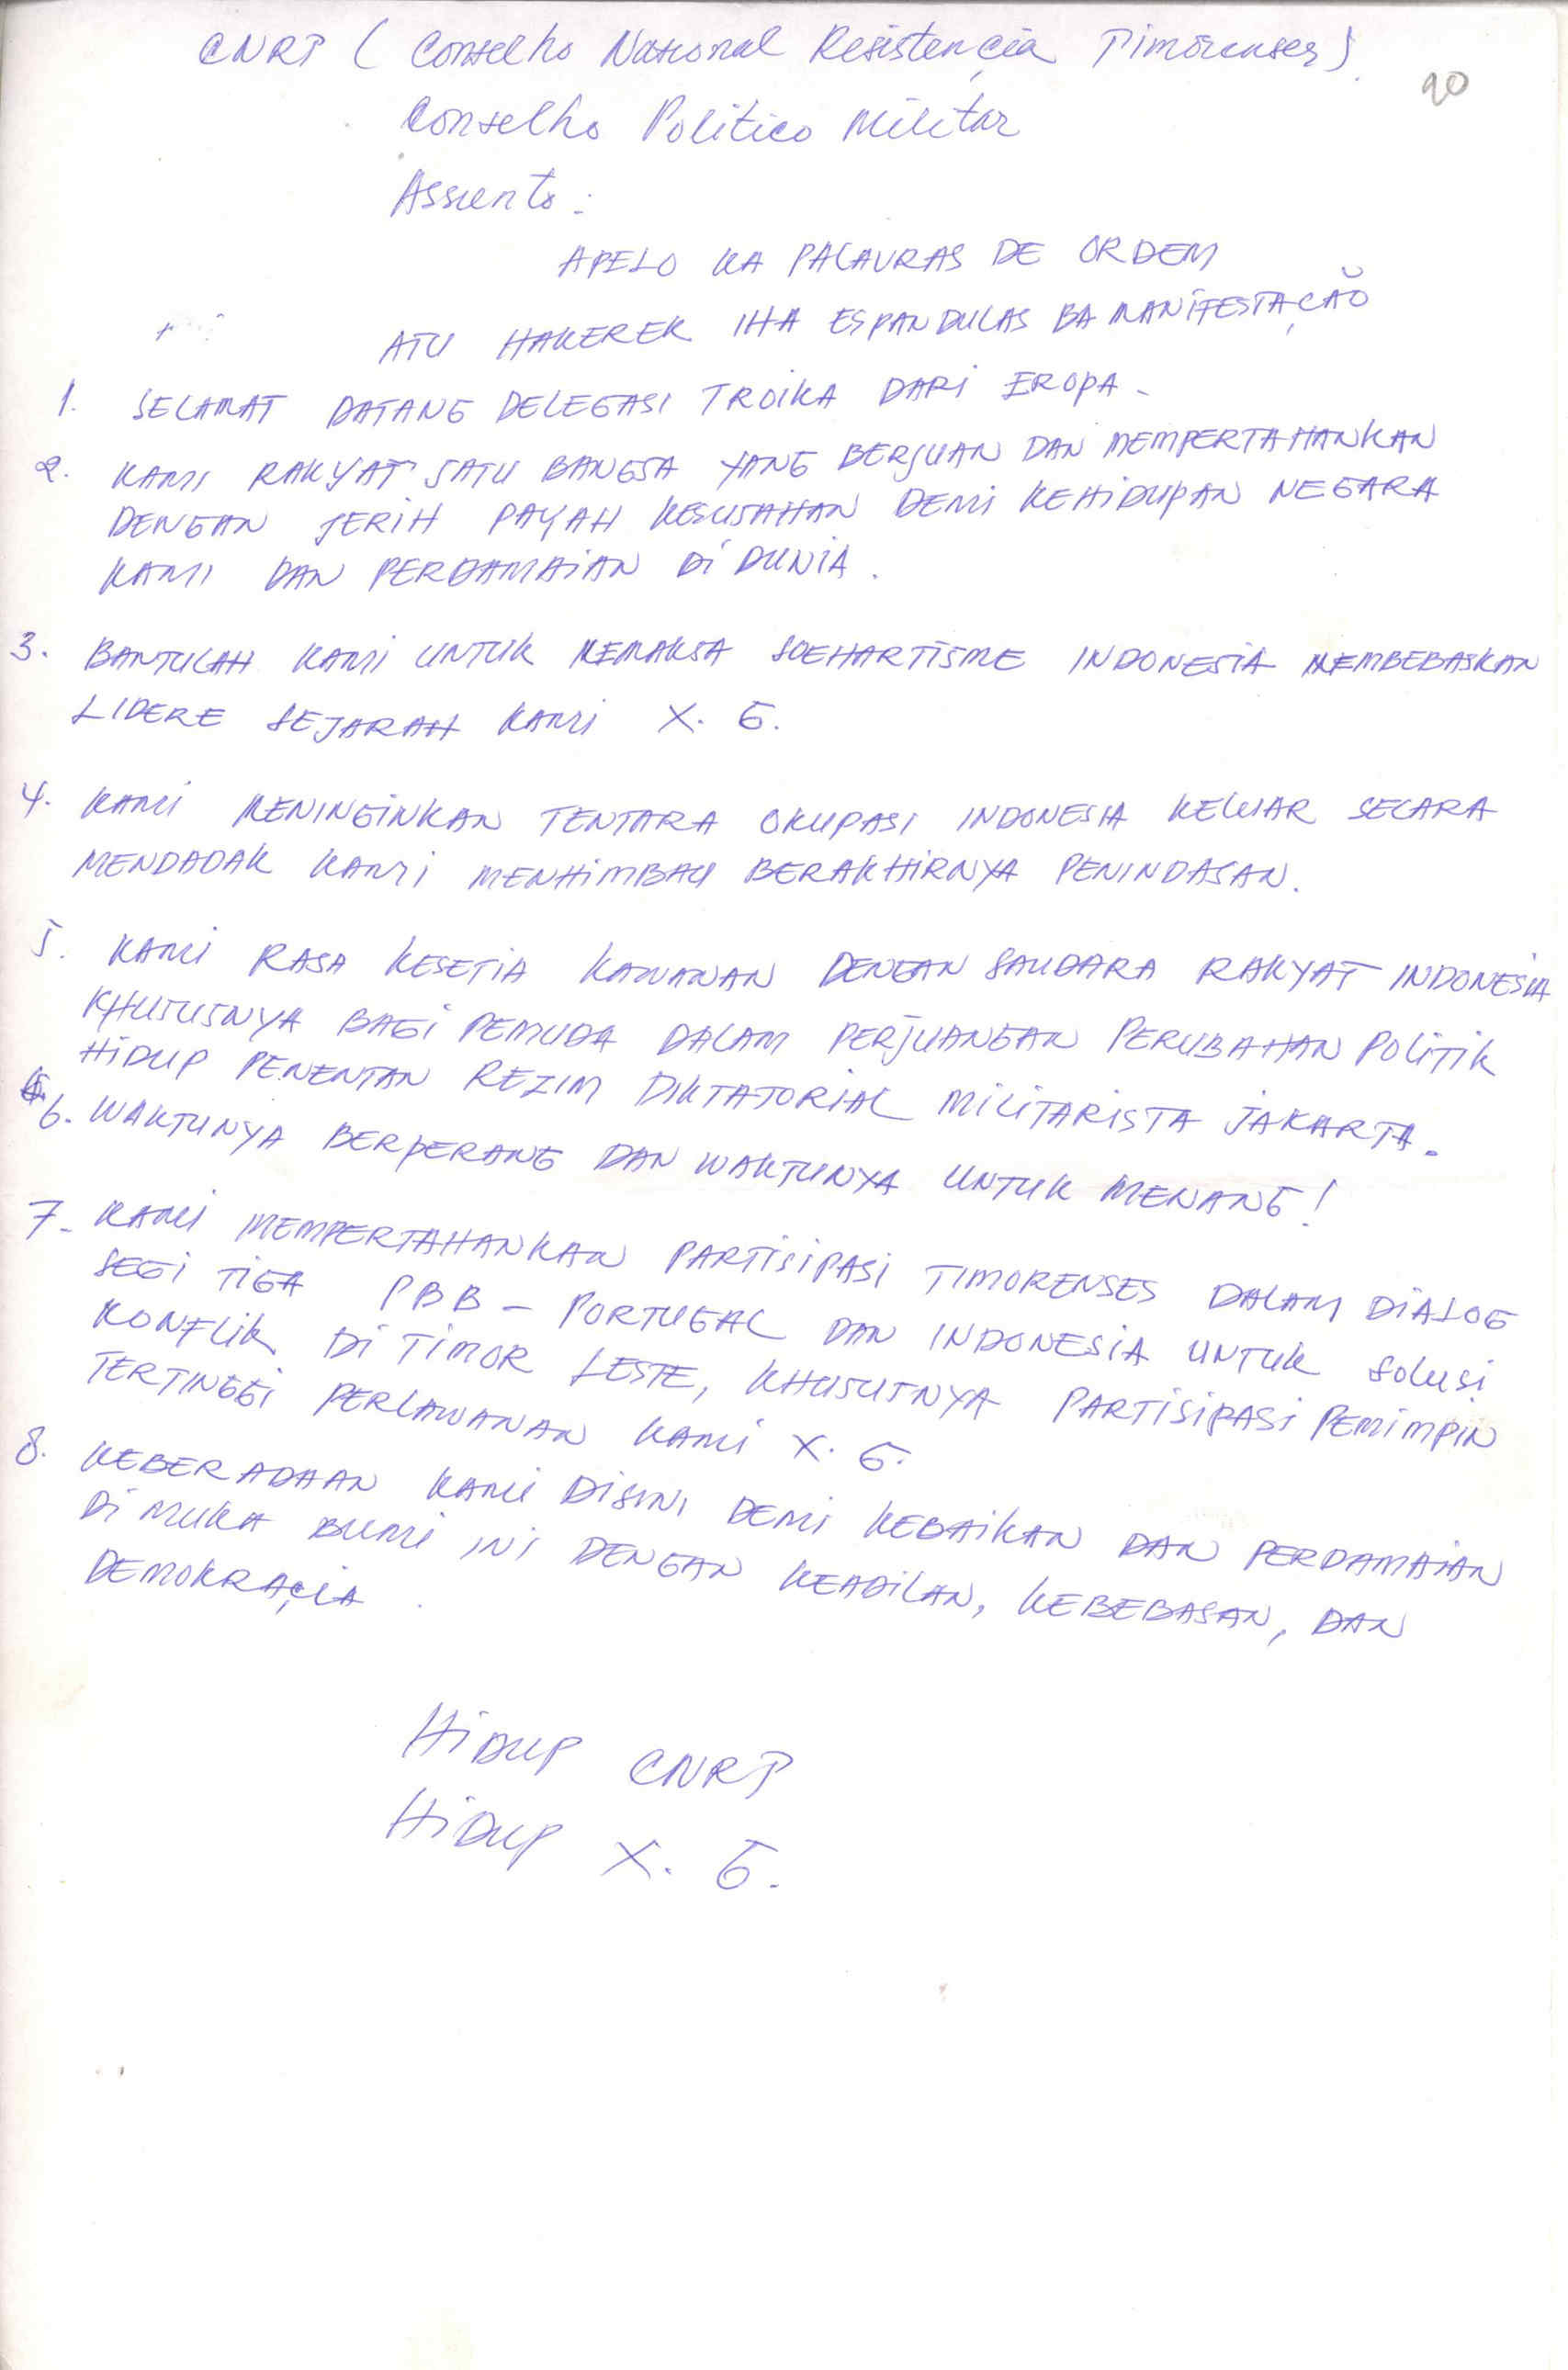 CNRT (Conselho National Resistençia Timorenses)
90
Conselho Politico Militar
Assunto:
APELO KA PALAVRAS DE ORDEM
ATU HAKEREK IHA ESPANDULAS BA MANIFESTAÇÃO
1. SELAMAT DATANG DELEGASI TROIKA DARI EROPA -
2. KAMI RAKYAT SATU BANGSA YANG BERJUAN DAN MEMPERTAHANKAN
DENGAN JERIH PAYAH KESUSAHAN DEMI KEHIDUPAN NEGARA
KAMI DAN PERDAMAIAN DI DUNIA.
3. BANTULAH KAMI UNTUK MEMAKSA SOEHARTISME INDONESIA MEMBEBASKAN
LIDERE SEJARAH KAMI X. G.
4. KAMI MENINGINKAN TENTARA OKUPASI INDONESIA KELUAR SECARA
MENDADAK KAMI MENHIMBAU BERAKHIRNYA PENINDASAN.
5. KAMI RASA KESETIA KAWANAN DENGAN SAUDARA RAKYAT INDONESIA
KHUSUSNYA BAGI PEMUDA DALAM PERJUANGAN PERUBAHAN POLITIK
HIDUP PENENTAN REZIM DIKTATORIAL MILITARISTA JAKARTA.
6. WAKTUNYA BERPERANG DAN WAKTUNYA UNTUK MENANG!
7. KAMI MEMPERTAHANKAN PARTISIPASI TIMORENSES DALAM DIALOG
SEGI TIGA PBB - PORTUGAL DAN INDONESIA UNTUK SOLUSI
KONFLIK DI TIMOR LESTE, KHUSUSNYA PARTISIPASI PEMIMPIN
TERTINGGI PERLAWANAN KAMI X. G.
8. KEBERADAAN KAMI DISINI DEMI KEBAIKAN DAN PERDAMAIAN
DI MUKA BUMI INI DENGAN KEADILAN, KEBEBASAN, DAN
DEMOKRAÇIA.
HIDUP CNRT
HIDUP X. G.